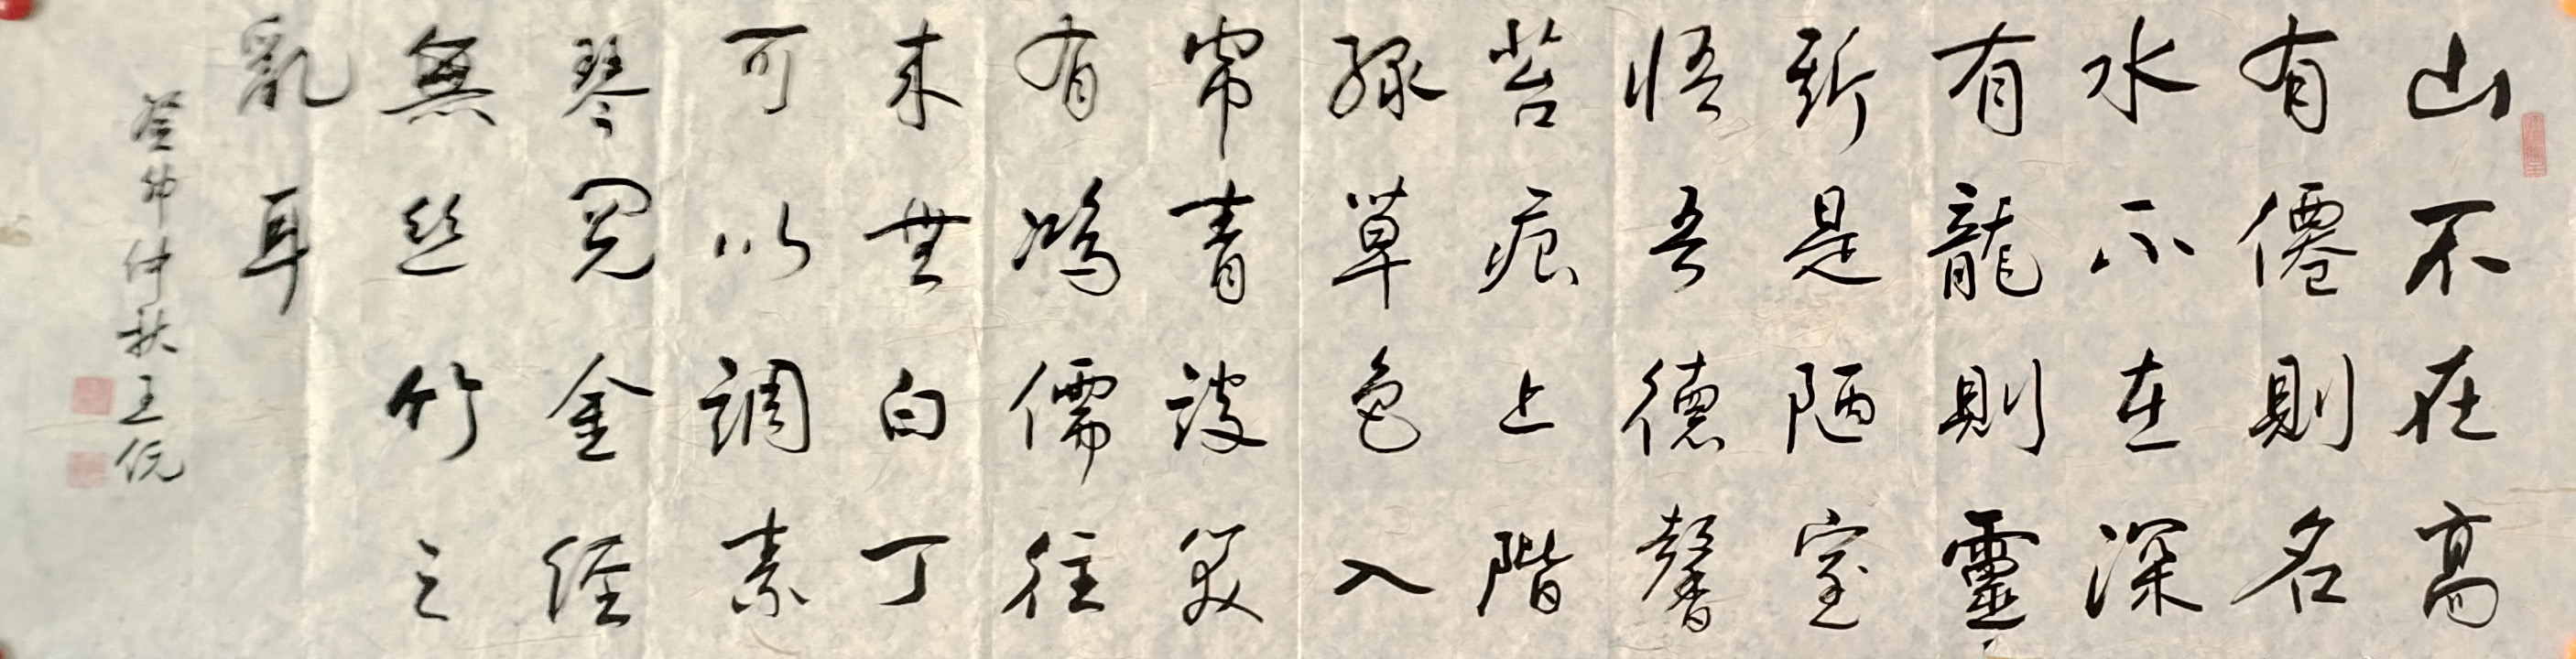 山不在高
有僊則名
水不在深
有龍則靈
斯是陋室
惟吾德馨
苔痕上階
綠草色入
帘青談笑
有鴻儒往
來無白丁
可以調素
琴閱金經
無丝竹之
亂耳
癸卯仲秋王倪